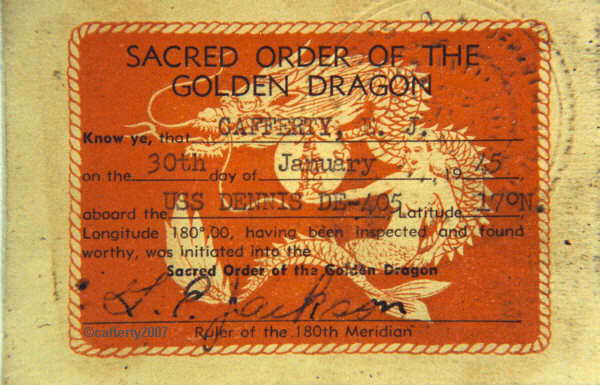 SACRED ORDER OF THE
GOLDEN DRAGON
Know ye, that CAFFERTY, J.
on the 30th day of January 1945,
aboard the USS DENNIS DE-405 Latitude 17°N.
Longitude 180°.00, having been inspected and found
worthy, was initiated into the
Sacred Order of the Golden Dragon
Jackson
©cafferty2007
Ruler of the 180th Meridian